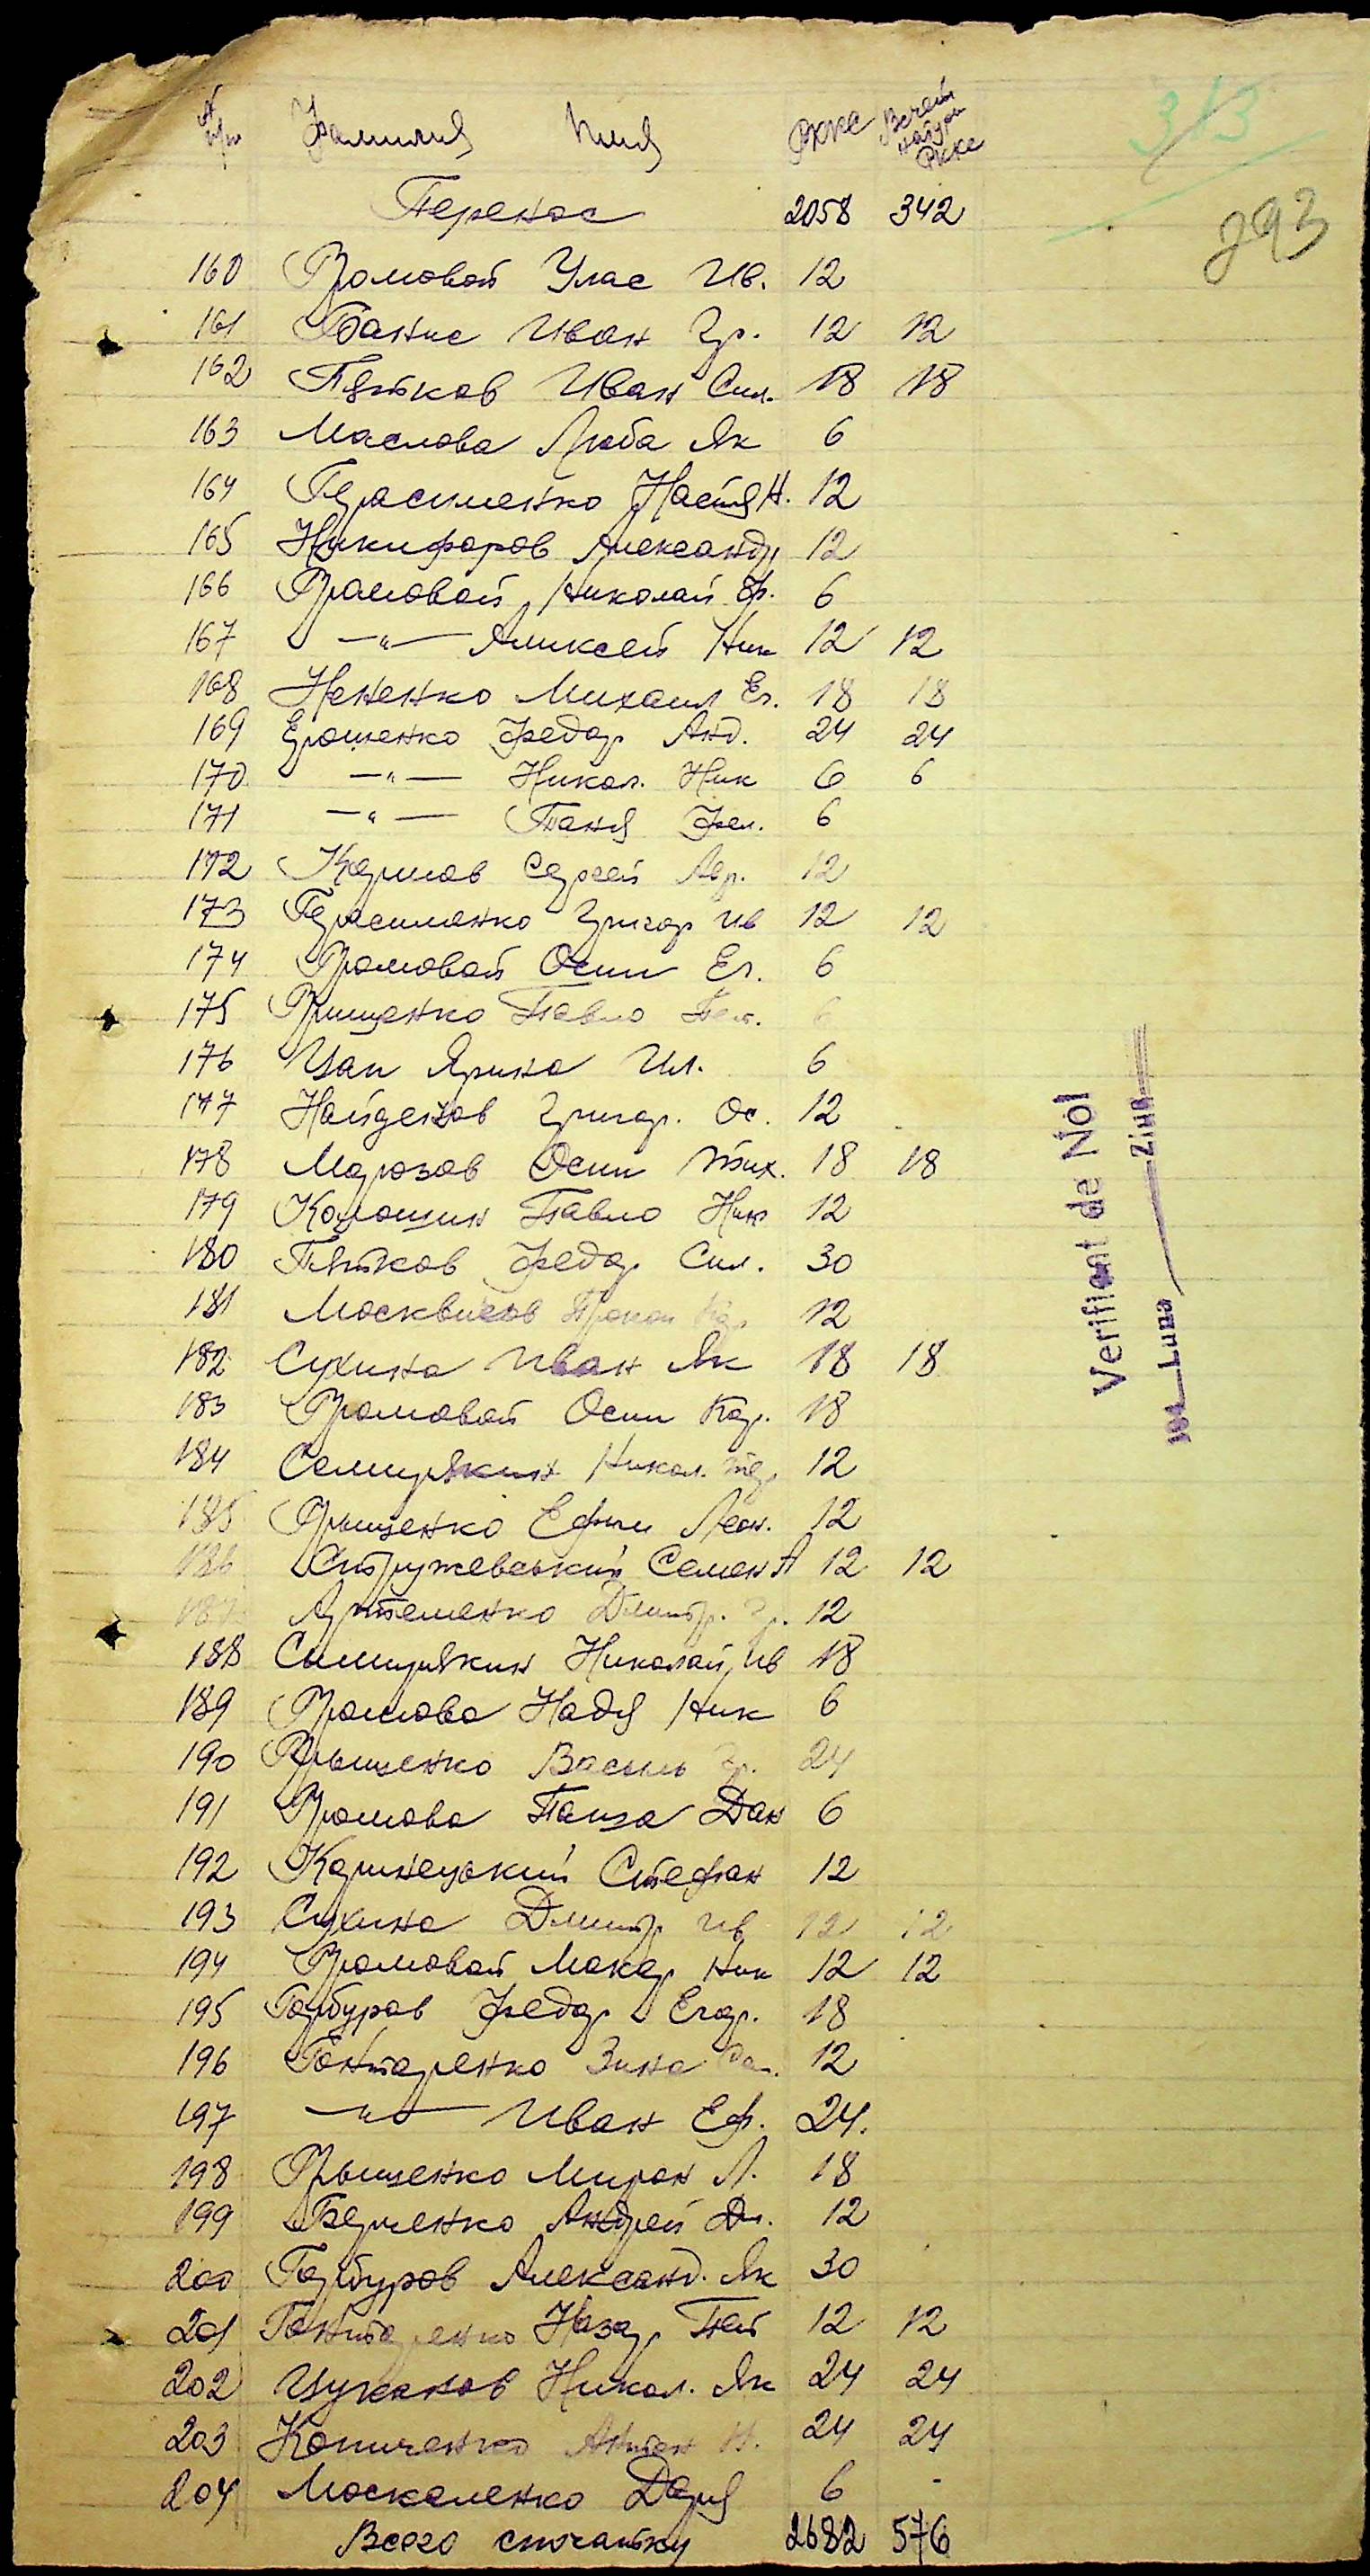 № п/п Фамилия Имя РККС
Перенос 2058 342
313
293
160 Громовой Улас Ив. 12
161 Банис Иван Гр. 12 12
162 Пятков Иван Сил. 18 18
163 Маслова Люба Як 6
164 Герасименко Настя Н. 12
165 Никифоров Александр 12
166 Громовой Николай Ф. 6
167 —"— Аликсей Ник 12 12
168 Нененко Михаил Ег. 18 18
169 Ерошенко Федор Анд. 24 24
170 —"— Никол. Ник 6 6
171 —"— Таня 6
172 Карпов Сергей 12
173 Герасименко Григор Ив 12 12
174 Громовой Осип Ег. 6
175 Грищенко Павло 6
176 Цап Ярина Ил. 6
177 Найденов Григор. Ос. 12
178 Марозов Осип Тих. 18 18
179 Колошин Павло Ник 12
180 Пятков Федор Сил. 30
181 Москвичов Прокоп 12
182 Сухина Иван Як 18 18
183 Громовой Осип Кор. 18
184 Семирякин Никол. 12
185 Грыщенко Ефим Леон. 12
186 Стружевський Семен А 12 12
187 Артеменко Дмитр. Гр. 12
188 Симирякин Николай Ив 18
189 Громова Надя Ник 6
190 Грыщенко Василь Гр. 24
191 Громова Паша Дан 6
192 Коринецький Стефан 12
193 Сухина Дмитр Ив 12 12
194 Громовой Макар Ник 12 12
195 Гарбуров Федор Егор. 18
196 Гонтаренко Зина 12
197 —"— Иван Еф. 24.
198 Грыщенко Мирон Л. 18
199 Берченко Андрей Дм. 12
200 Гарбуров Александ. Як 30
201 Гонтаренко Назар 12 12
202 Цуканов Никол. Як 24 24
203 Копиченко Антон Н. 24 24
204 Москаленко Даря 6 -
Всего спочатку 2682 576
Verificat de NOI
Luna Ziua